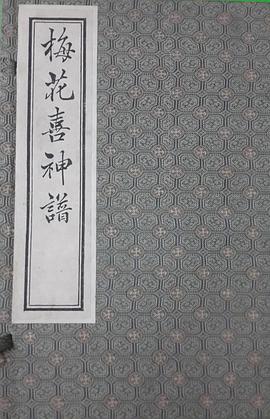 梅花喜神譜